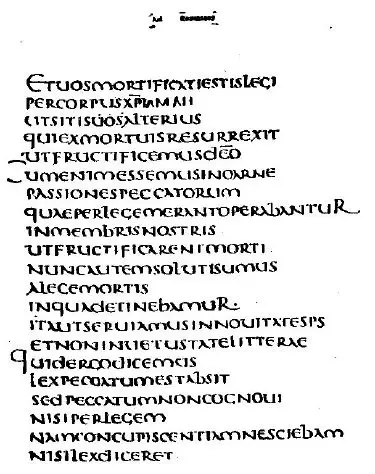 AD ROMANOS
ETUOSMORTIFICATIESTISLEGI
PERCORPUSXPI
UTSITISUOSALTERIUS
QUIEXMORTUISRESURREXIT
UTFRUCTIFICEMUSDEO
CUMENIMESSEMUSINCARNE
PASSIONESPECCATORUM
QUAEPERLEGEMERANTOPERABANTUR
INMEMBRISNOSTRIS
UTFRUCTIFICARENTMORTI
NUNCAUTEMSOLUTISUMUS
ALEGEMORTIS
INQUADETINEBAMUR
ITAUTSERUIAMUSINNOUITATESPS
ETNONINUETUSTATELITTERAE
QUIDERGODICEMUS
LEXPECCATUMESTABSIT
SEDPECCATUMNONCOGNOUI
NISIPERLEGEM
NAMCONCUPISCENTIAMNESCIEBAM
NISILEXDICERET